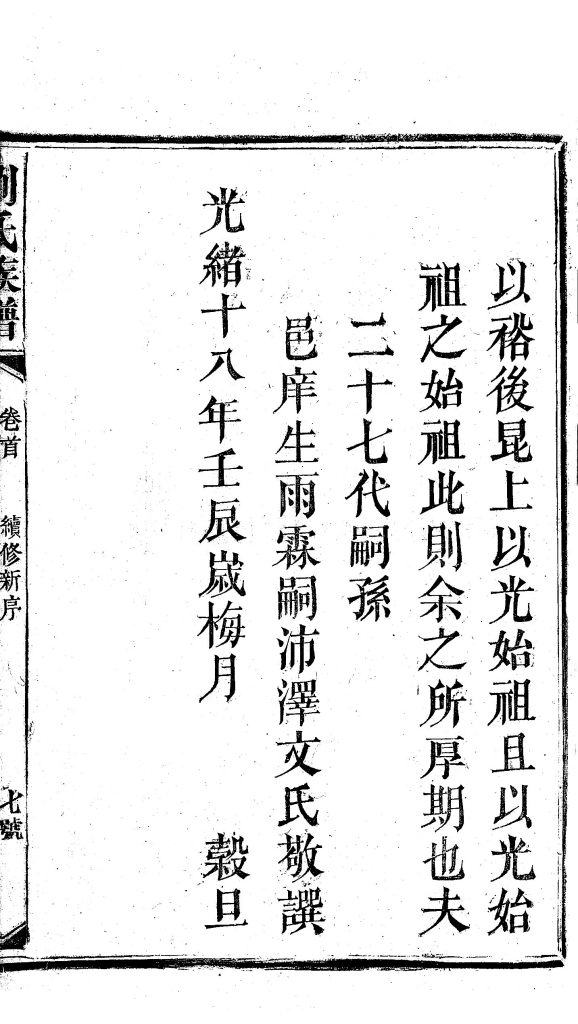 以裕後昆上以光始祖且以光始
祖之始祖此則余之所厚期也夫
二十七代嗣孫
邑庠生雨霖嗣沛澤文氏敬譔
光緒十八年壬辰歲梅月 穀旦
劉氏族譜 卷首 續修新序 七號